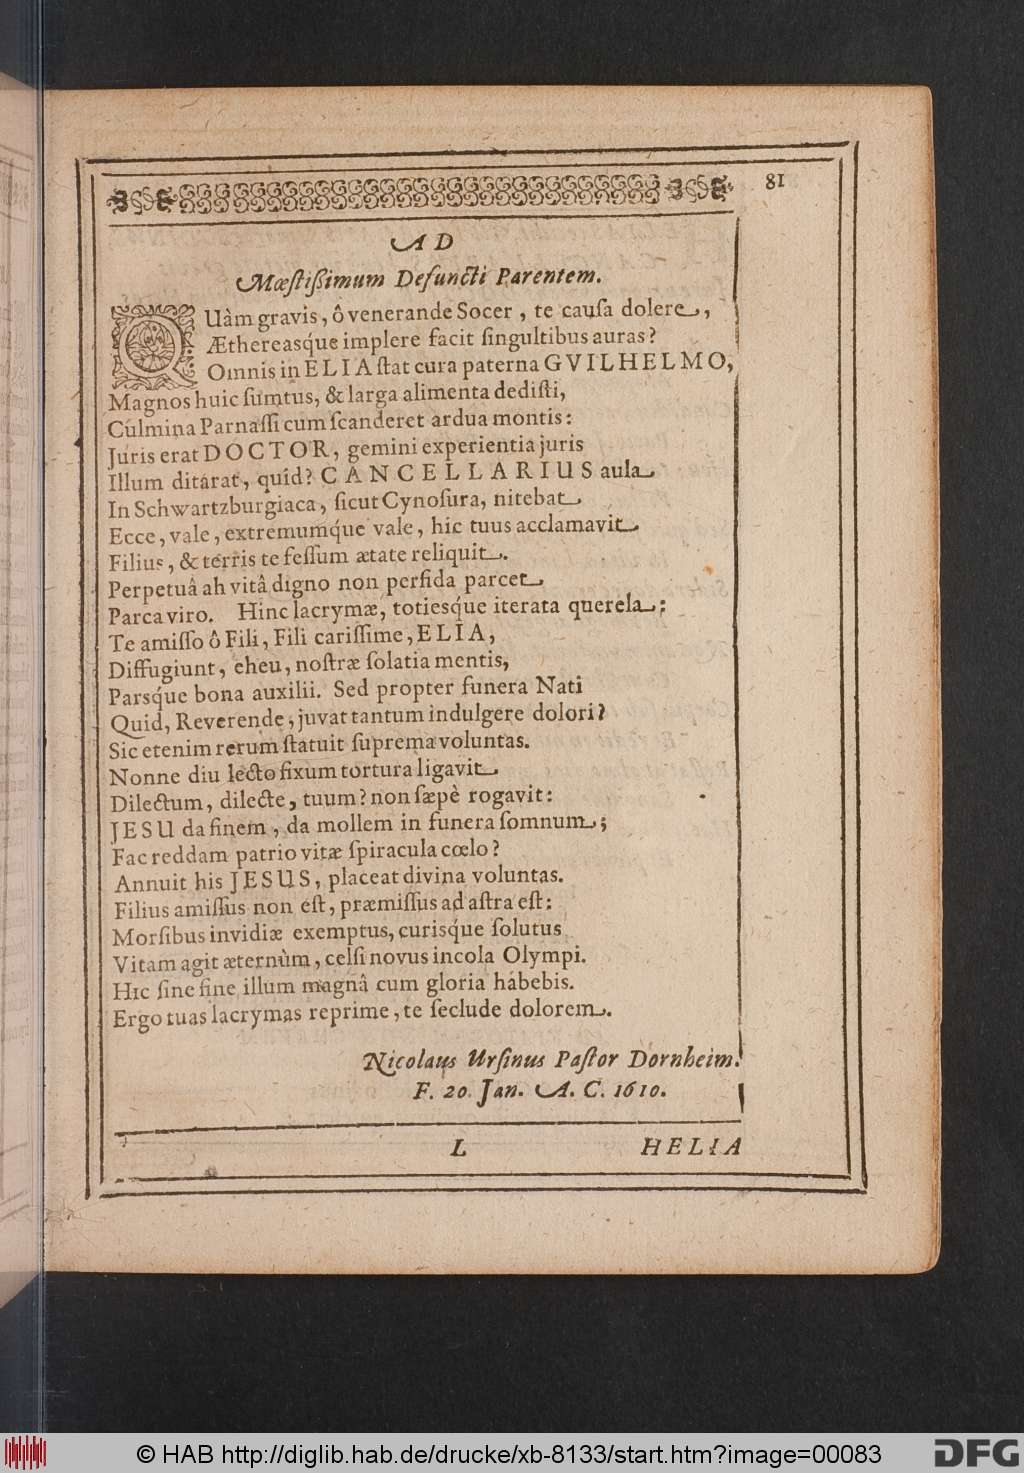 81
AD
Mœſtiſsimum Defuncti Parentem.
QUàm gravis, ô venerande Socer, te cauſa dolere,
Æthereasq́ue implere facit ſingultibus auras?
Omnis in ELIA ſtat cura paterna GVILHELMO,
Magnos huic ſumtus, & larga alimenta dediſti,
Culmina Parnaſſi cum ſcanderet ardua montis:
Juris erat DOCTOR, gemini experientia juris
Illum ditárat, quid? CANCELLARIUS aula
In Schwartzburgiaca, ſicut Cynoſura, nitebat
Ecce, vale, extremumq́ue vale, hic tuus acclamavit
Filius, & terris te feſſum ætate reliquit.
Perpetuâ ah vitâ digno non perfida parcet
Parca viro. Hinc lacrymæ, totiesq́ue iterata querela:
Te amiſſo ô Fili, Fili cariſſime, ELIA,
Diffugiunt, eheu, noſtræ ſolatia mentis,
Parsq́ue bona auxilii. Sed propter funera Nati
Quid, Reverende, juvat tantum indulgere dolori?
Sic etenim rerum ſtatuit ſuprema voluntas.
Nonne diu lecto fixum tortura ligavit
Dilectum, dilecte, tuum? non ſæpè rogavit:
JESU da finem, da mollem in funera ſomnum;
Fac reddam patrio vitæ ſpiracula cœlo?
Annuit his JESUS, placeat divina voluntas.
Filius amiſſus non eſt, præmiſſus ad aſtra eſt:
Morſibus invidiæ exemptus, curisq́ue ſolutus
Vitam agit æternùm, celſi novus incola Olympi.
Hic ſine fine illum magnâ cum gloria habebis.
Ergo tuas lacrymas reprime, te ſeclude dolorem.
Nicolaus Urſinus Paſtor Dornheim.
F. 20. Jan. A. C. 1610.
L HELIA
© HAB http://diglib.hab.de/drucke/xb-8133/start.htm?image=00083
DFG